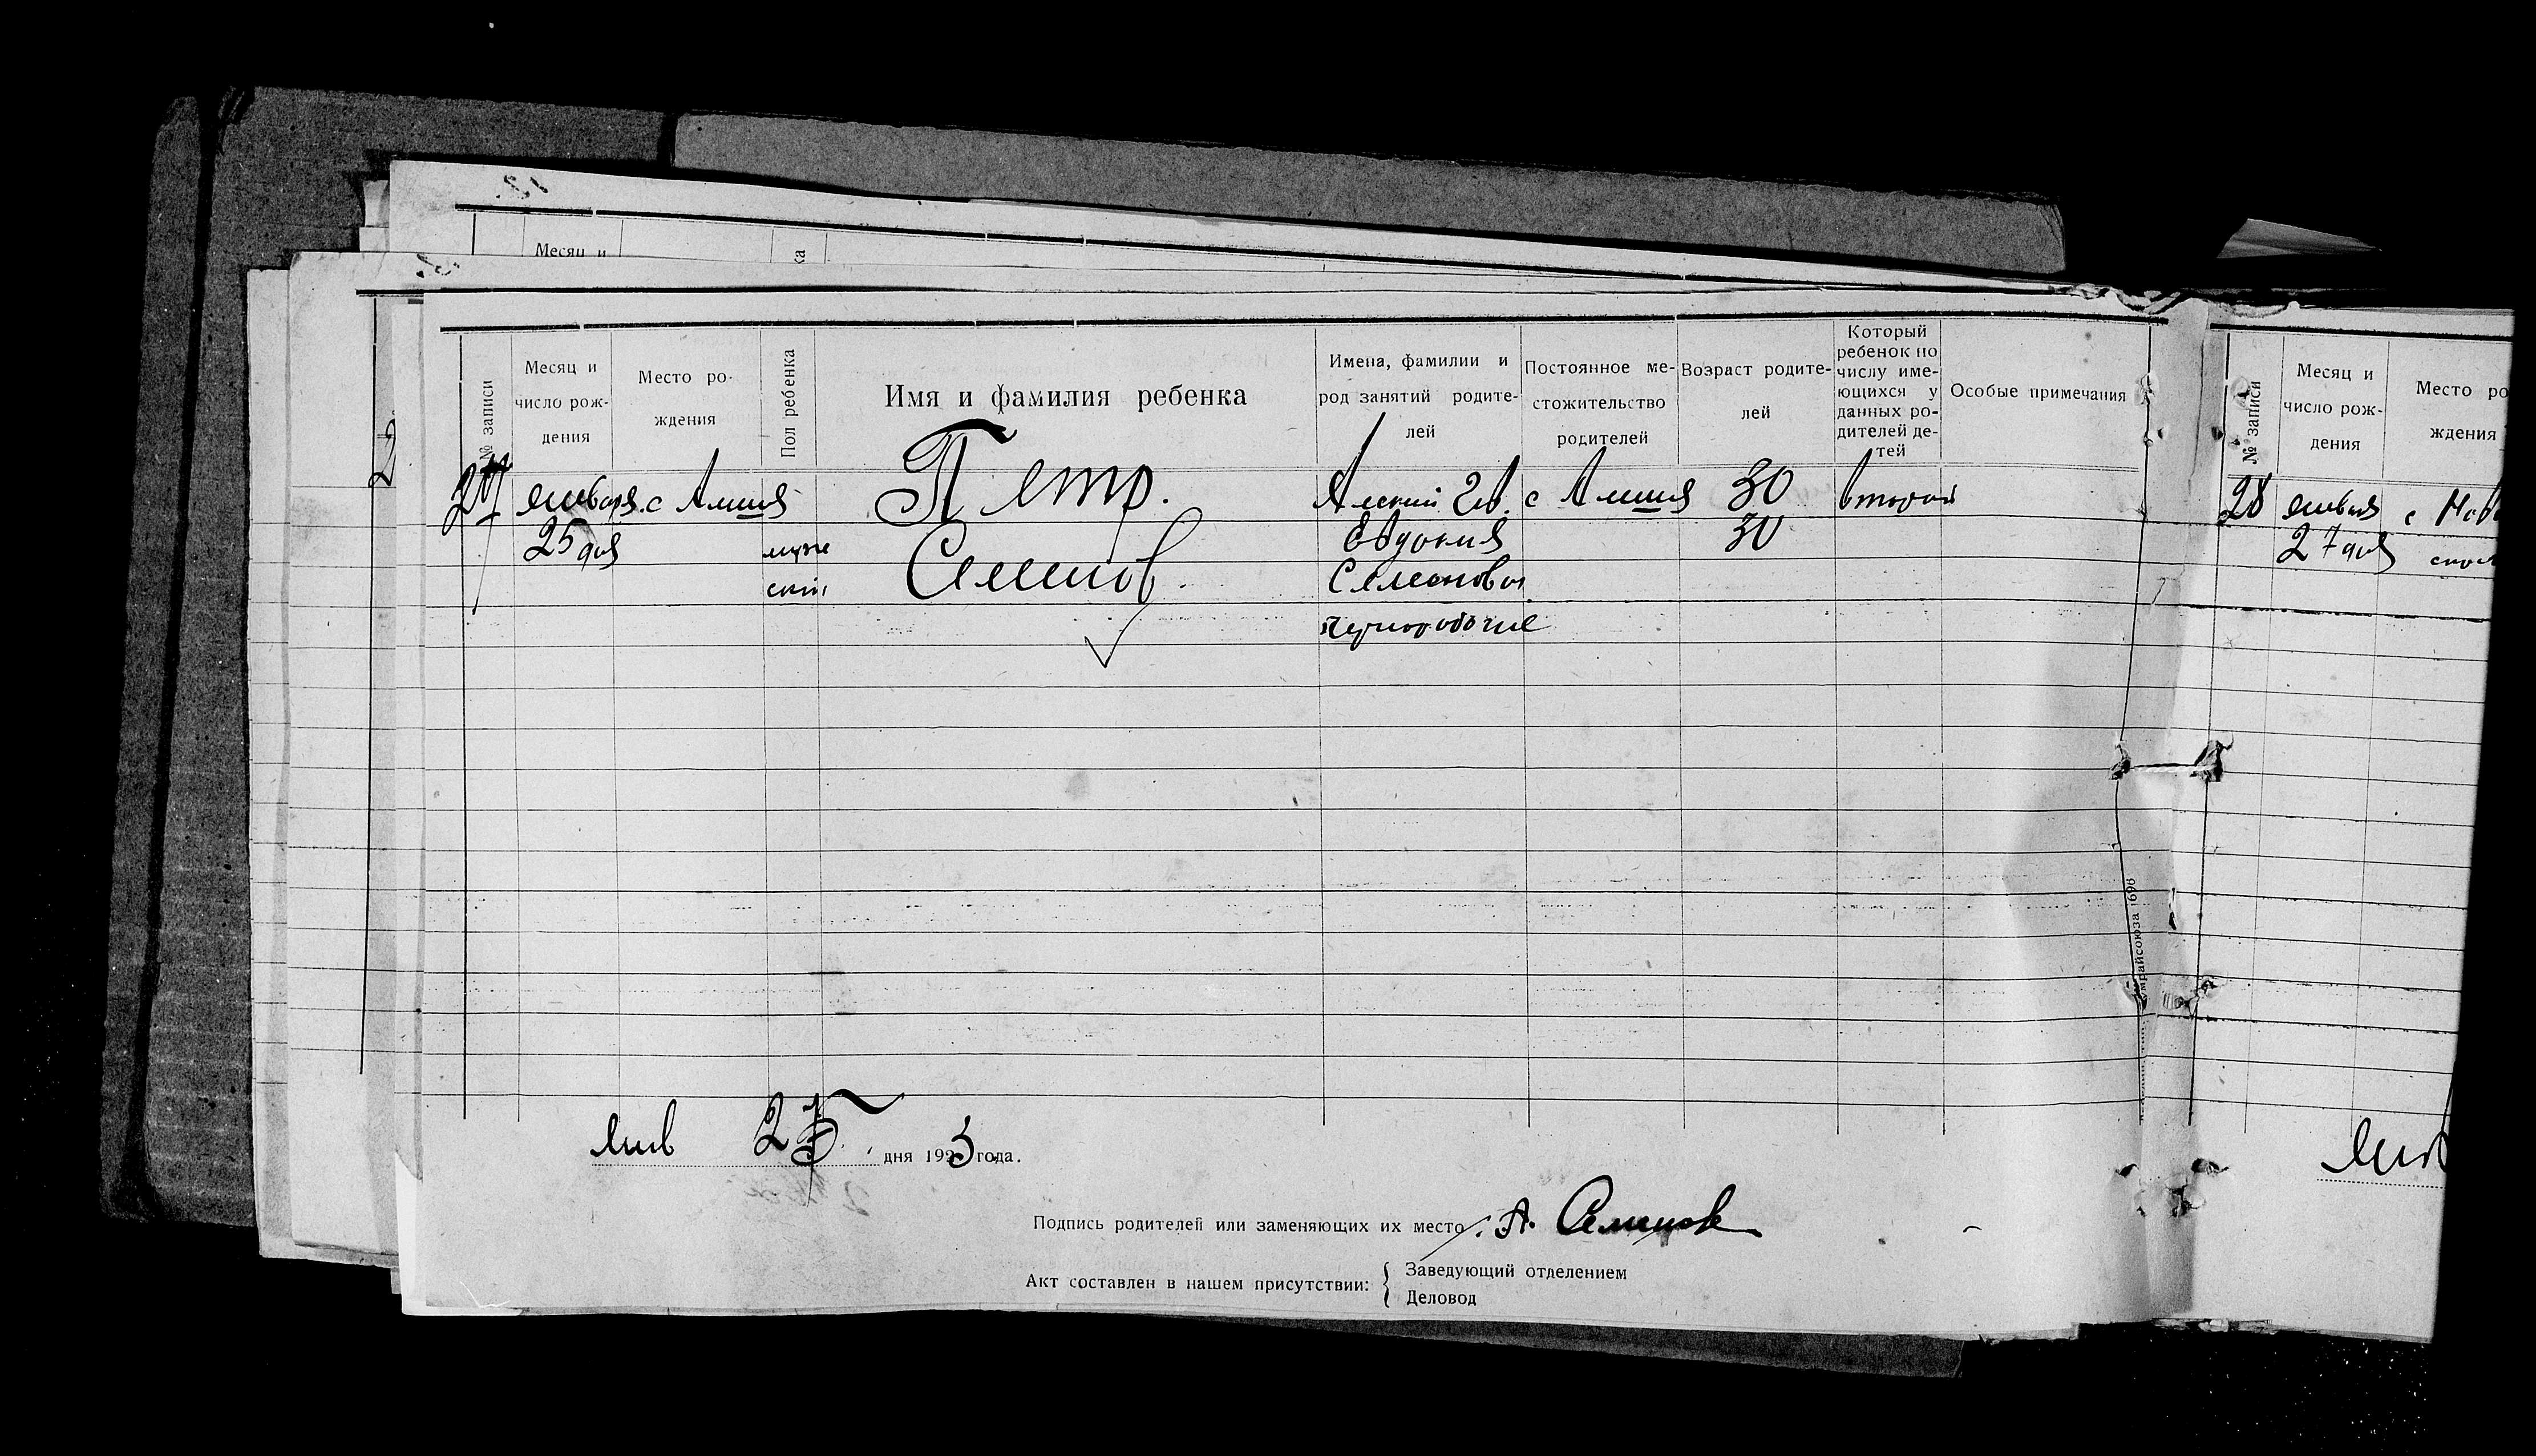 Месяц и
№ записи
Месяц и
число рож-
дения
Место ро-
ждения
Пол ребенка
Имя и фамилия ребенка
Имена, фамилии и
род занятий родите-
лей
Постоянное ме-
стожительство
родителей
Возраст родите-
лей
Который
ребенок по
числу име-
ющихся у
данных ро-
дителей де-
тей
Особые примечания
27 января с Амия Петр. с Амия 30 второй
25 дня муж Евдокия 30
ский Семенов Семеновы
чернорабочие
янв 25 дня 1925 года.
Подпись родителей или заменяющих их место А. Семенов
Акт составлен в нашем присутствии:
Заведующий отделением
Деловод
райсоюза 1696
№ записи
Месяц и
число рож-
дения
Место ро
ждения
28 января с
27 дня
Янв